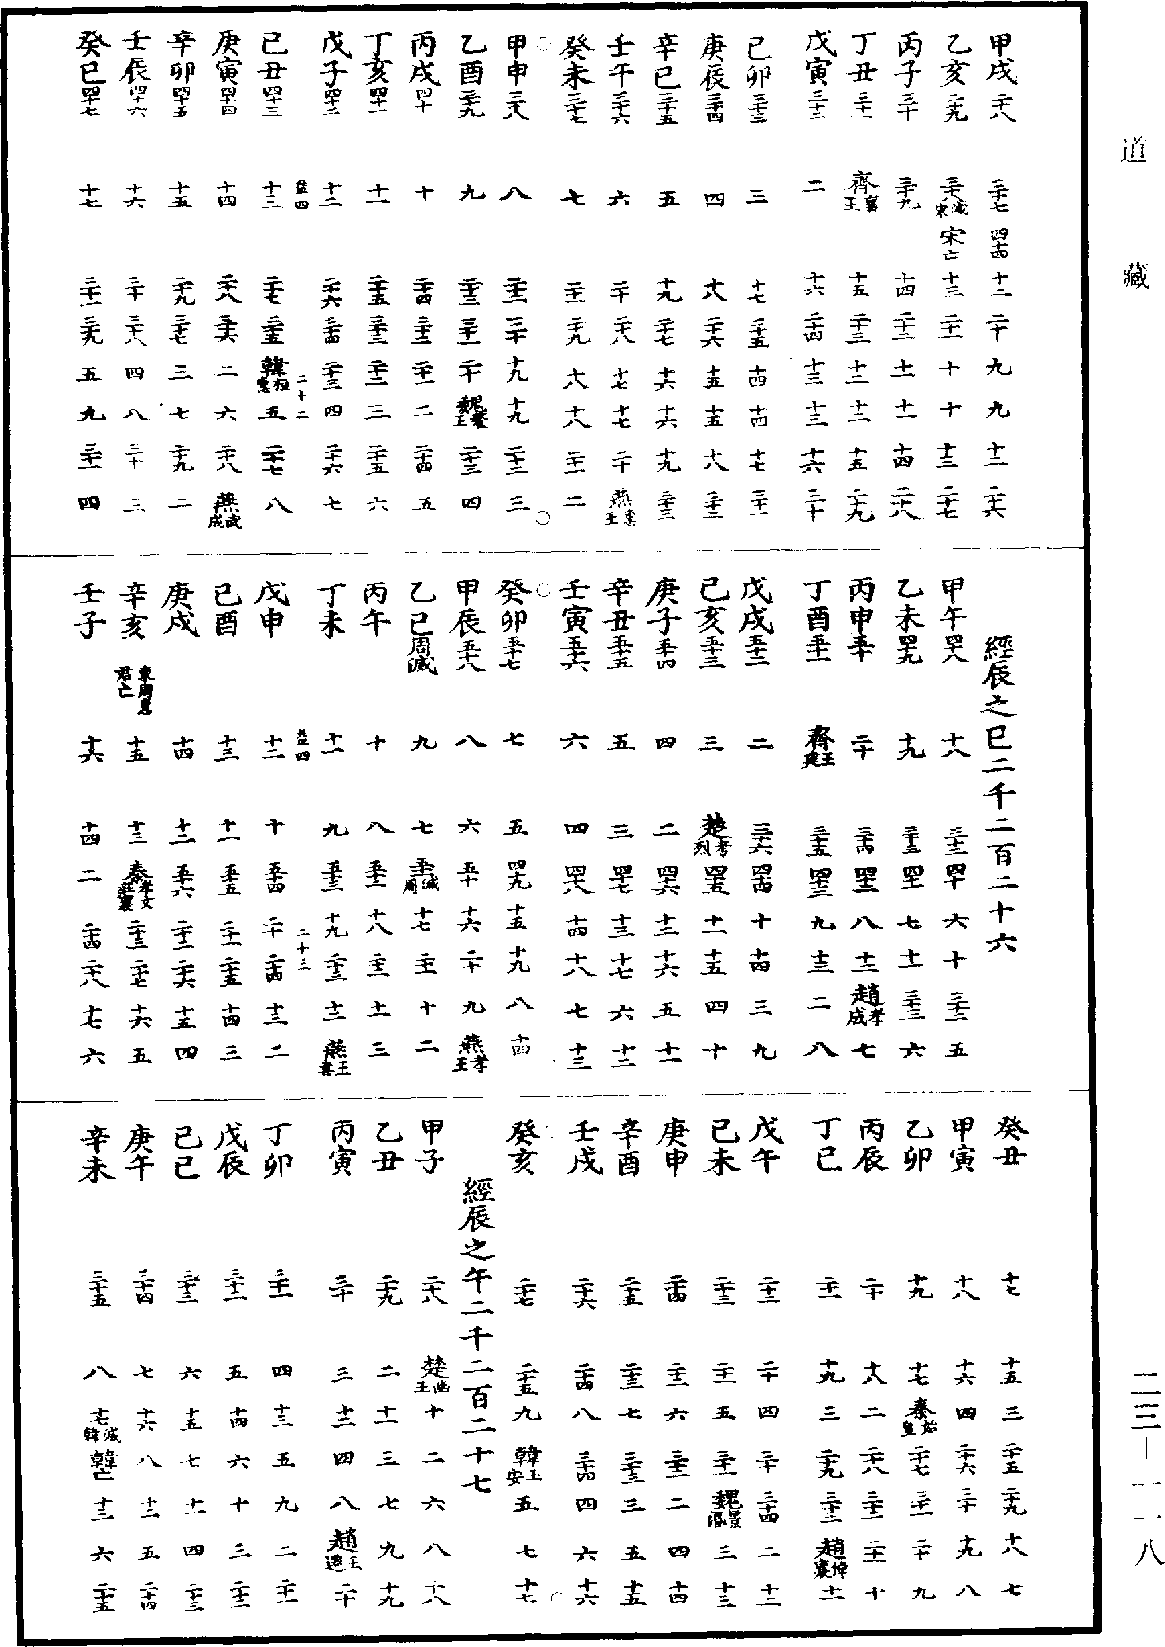 道 藏
甲戌 二十八 三十七 四十四 十二 二十 九 九 十二 二十六
乙亥 二十九 三十八 滅宋 宋亡 十三 二十一 十 十 十三 二十七
丙子 三十 三十九 十四 二十二 十一 十一 十四 二十八
丁丑 三十一 齊襄王 十五 二十三 十二 十二 十五 二十九
戊寅 三十二 二 十六 二十四 十三 十三 十六 三十
己卯 三十三 三 十七 二十五 十四 十四 十七 三十一
庚辰 三十四 四 十八 二十六 十五 十五 十八 三十二
辛巳 三十五 五 十九 二十七 十六 十六 十九 三十三
壬午 三十六 六 二十 二十八 十七 十七 二十 燕惠王
癸未 三十七 七 二十一 二十九 十八 十八 二十一 二
甲申 三十八 八 二十二 三十 十九 十九 二十二 三
乙酉 三十九 九 二十三 三十一 二十 魏釐王 二十三 四
丙戌 四十 十 二十四 三十二 二十一 二 二十四 五
丁亥 四十一 十一 二十五 三十三 二十二 三 二十五 六
戊子 四十二 十二 二十六 三十四 二十三 四 二十六 七
益四 二十二
己丑 四十三 十三 二十七 三十五 韓桓惠 五 二十七 八
庚寅 四十四 十四 二十八 三十六 二 六 二十八 燕武成
辛卯 四十五 十五 二十九 三十七 三 七 二十九 二
壬辰 四十六 十六 三十 三十八 四 八 三十 三
癸巳 四十七 十七 三十一 三十九 五 九 三十一 四
經辰之巳二千二百二十六
甲午 四十八 十八 三十二 四十 六 十 三十二 五
乙未 四十九 十九 三十三 四十一 七 十一 三十三 六
丙申 五十 二十 三十四 四十二 八 十二 趙孝成 七
丁酉 五十一 齊王建 三十五 四十三 九 十三 二 八
戊戌 五十二 二 三十六 四十四 十 十四 三 九
己亥 五十三 三 楚考烈 四十五 十一 十五 四 十
庚子 五十四 四 二 四十六 十二 十六 五 十一
辛丑 五十五 五 三 四十七 十三 十七 六 十二
壬寅 五十六 六 四 四十八 十四 十八 七 十三
癸卯 五十七 七 五 四十九 十五 十九 八 十四
甲辰 五十八 八 六 五十 十六 二十 九 燕孝王
乙巳 周滅 九 七 五十一 滅周 十七 二十一 十 二
丙午 十 八 五十二 十八 二十二 十一 三
丁未 十一 九 五十三 十九 二十三 十二 燕王喜
益四 二十三
戊申 十二 十 五十四 二十 二十四 十三 二
己酉 十三 十一 五十五 二十一 二十五 十四 三
庚戌 十四 十二 五十六 二十二 二十六 十五 四
辛亥 東周惠君亡 十五 十三 秦孝文莊襄 二十三 二十七 十六 五
壬子 十六 十四 二 二十四 二十八 十七 六
癸丑 十七 十五 三 二十五 二十九 十八 七
甲寅 十八 十六 四 二十六 三十 十九 八
乙卯 十九 十七 秦始皇 二十七 三十一 二十 九
丙辰 二十 十八 二 二十八 三十二 二十一 十
丁巳 二十一 十九 三 二十九 三十三 趙悼襄 十一
戊午 二十二 二十 四 三十 三十四 二 十二
己未 二十三 二十一 五 三十一 魏景湣 三 十三
庚申 二十四 二十二 六 三十二 二 四 十四
辛酉 二十五 二十三 七 三十三 三 五 十五
壬戌 二十六 二十四 八 三十四 四 六 十六
癸亥 二十七 二十五 九 韓王安 五 七 十七
經辰之午二千二百二十七
甲子 二十八 楚幽王 十 二 六 八 十八
乙丑 二十九 二 十一 三 七 九 十九
丙寅 三十 三 十二 四 八 趙王遷 二十
丁卯 三十一 四 十三 五 九 二 二十一
戊辰 三十二 五 十四 六 十 三 二十二
己巳 三十三 六 十五 七 十一 四 二十三
庚午 三十四 七 十六 八 十二 五 二十四
辛未 三十五 八 十七 滅韓 韓亡 十三 六 二十五
二三—一一八